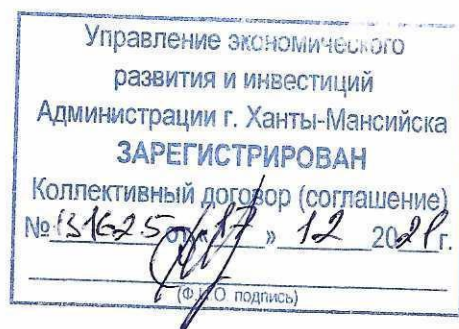 Управление экономического
развития и инвестиций
Администрации г. Ханты-Мансийска
ЗАРЕГИСТРИРОВАН
Коллективный договор (соглашение)
№ 131625 от «17» 12 2021 г.
(Ф.И.О. подпись)